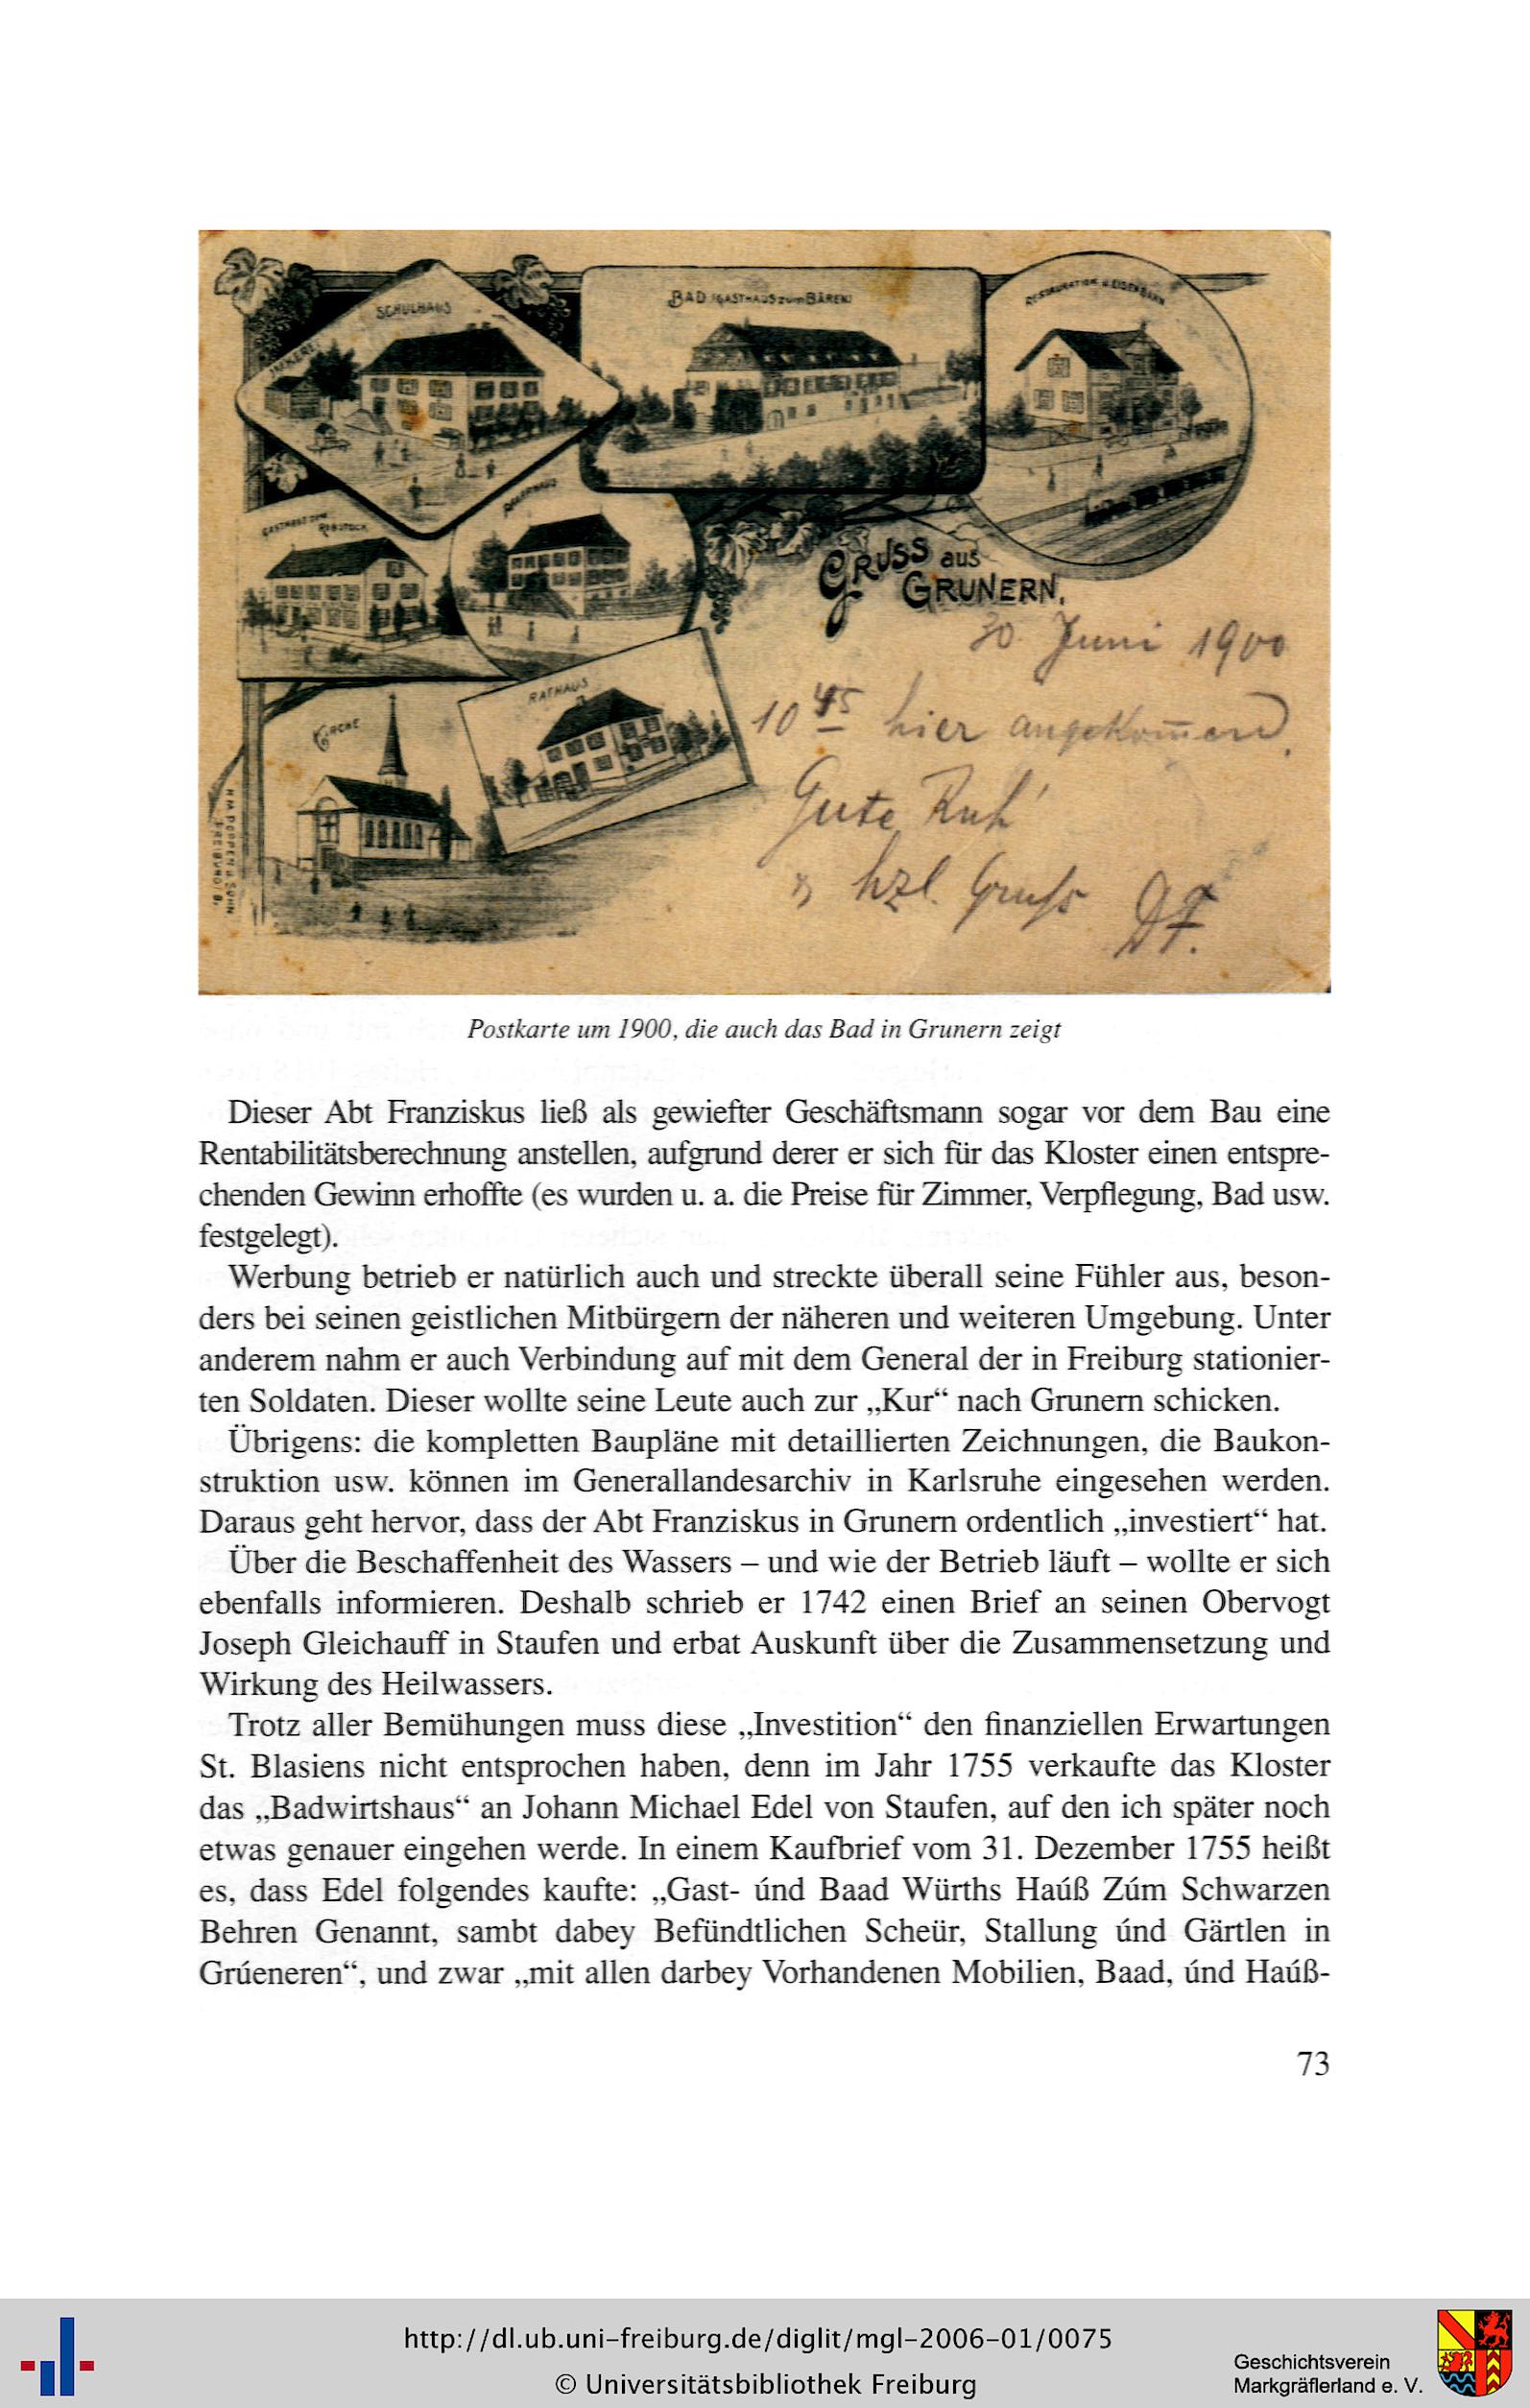 SCHULHAUS
BAD (GASTHAUS zum BÄREN)
RESTAURATION u. EISENBAHN
GASTHAUS ZUM REBSTOCK
KIRCHE
RATHAUS
GRUSS aus
GRUNERN.
30. Juni 1900
10 45 hier angekommen.
Gute Ruh'
hzl. Gruß
HM. POPPEN u. SOHN
FREIBURG i/B.
Postkarte um 1900, die auch das Bad in Grunern zeigt
Dieser Abt Franziskus ließ als gewiefter Geschäftsmann sogar vor dem Bau eine
Rentabilitätsberechnung anstellen, aufgrund derer er sich für das Kloster einen entspre-
chenden Gewinn erhoffte (es wurden u. a. die Preise für Zimmer, Verpflegung, Bad usw.
festgelegt).
Werbung betrieb er natürlich auch und streckte überall seine Fühler aus, beson-
ders bei seinen geistlichen Mitbürgern der näheren und weiteren Umgebung. Unter
anderem nahm er auch Verbindung auf mit dem General der in Freiburg stationier-
ten Soldaten. Dieser wollte seine Leute auch zur „Kur“ nach Grunern schicken.
Übrigens: die kompletten Baupläne mit detaillierten Zeichnungen, die Baukon-
struktion usw. können im Generallandesarchiv in Karlsruhe eingesehen werden.
Daraus geht hervor, dass der Abt Franziskus in Grunern ordentlich „investiert“ hat.
Über die Beschaffenheit des Wassers – und wie der Betrieb läuft – wollte er sich
ebenfalls informieren. Deshalb schrieb er 1742 einen Brief an seinen Obervogt
Joseph Gleichauff in Staufen und erbat Auskunft über die Zusammensetzung und
Wirkung des Heilwassers.
Trotz aller Bemühungen muss diese „Investition“ den finanziellen Erwartungen
St. Blasiens nicht entsprochen haben, denn im Jahr 1755 verkaufte das Kloster
das „Badwirtshaus“ an Johann Michael Edel von Staufen, auf den ich später noch
etwas genauer eingehen werde. In einem Kaufbrief vom 31. Dezember 1755 heißt
es, dass Edel folgendes kaufte: „Gast- únd Baad Würths Haúß Zúm Schwarzen
Behren Genannt, sambt dabey Befündtlichen Scheür, Stallung únd Gärtlen in
Grúeneren“, und zwar „mit allen darbey Vorhandenen Mobilien, Baad, únd Haúß-
73
http://dl.ub.uni-freiburg.de/diglit/mgl-2006-01/0075
© Universitätsbibliothek Freiburg
Geschichtsverein
Markgräflerland e. V.